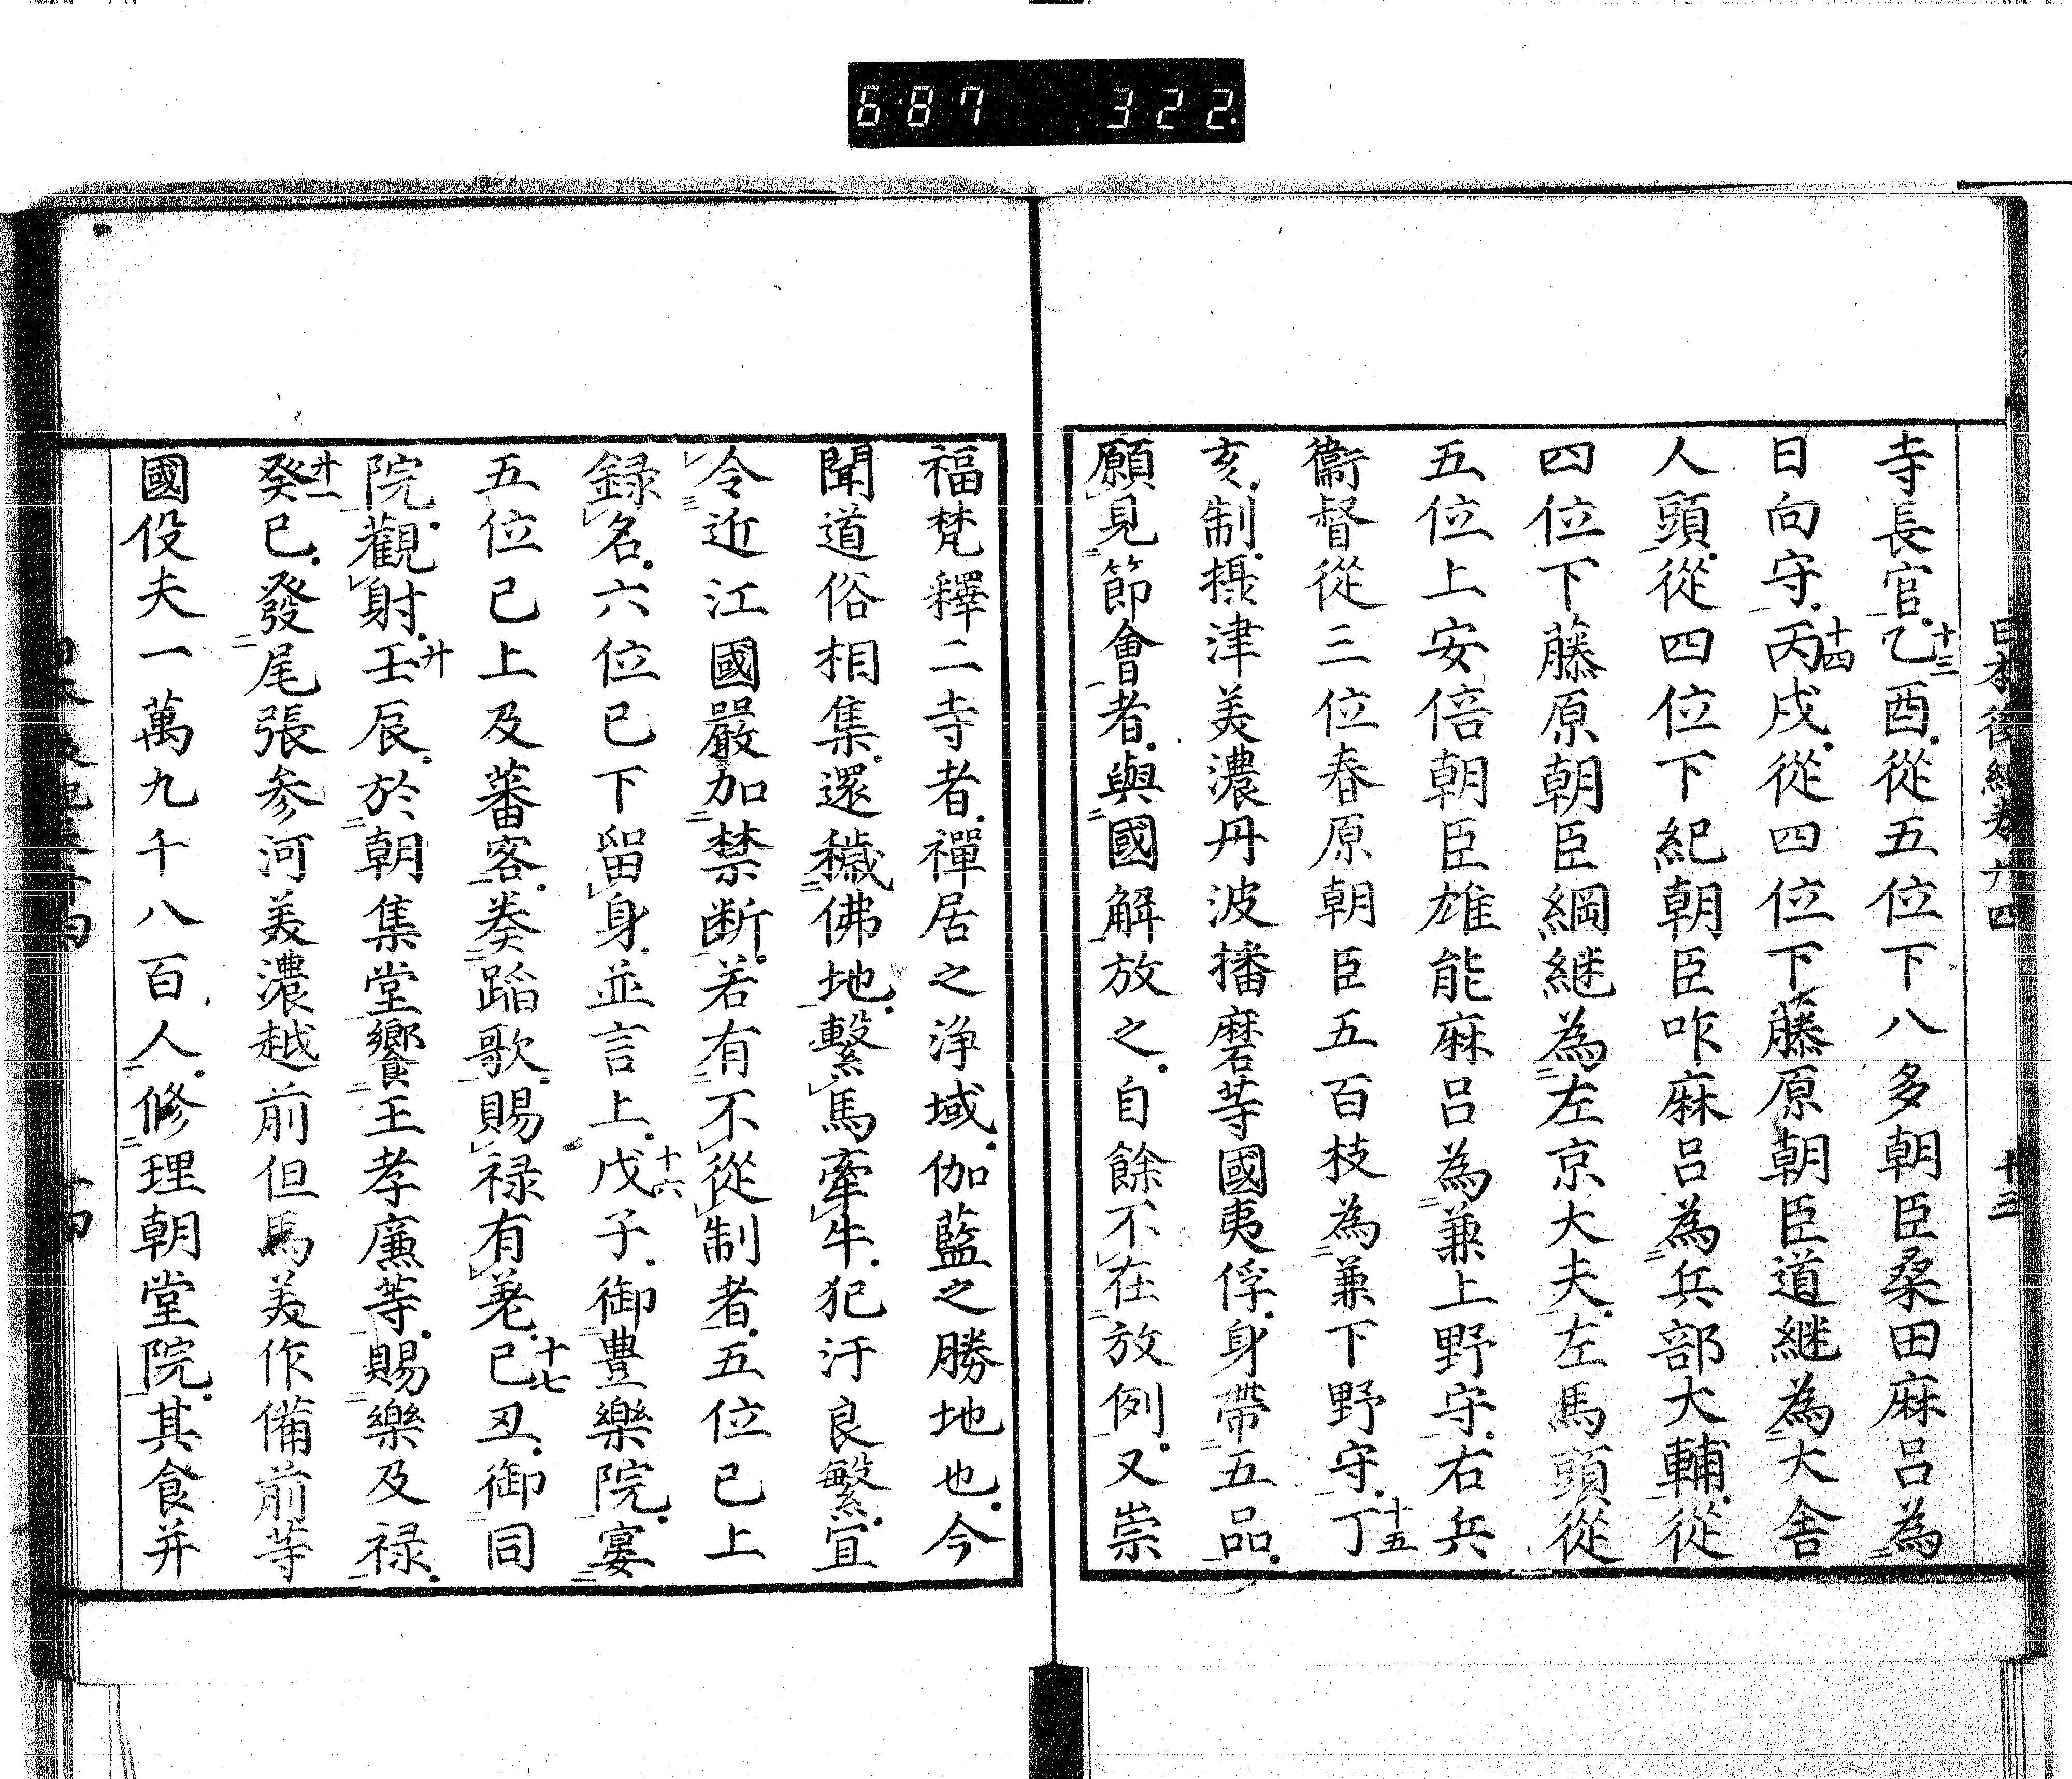 687 322
日本後紀卷廿四 十三
寺長官乙酉從五位下八多朝臣桒田麻呂為
十三
日向守丙戌從四位下藤原朝臣道継為大舍
十四
人頭從四位下紀朝臣咋麻呂為兵部大輔從
四位下藤原朝臣綱継為左京大夫左馬頭從
五位上安倍朝臣雄能麻呂為兼上野守右兵
衞督從三位春原朝臣五百枝為兼下野守丁
十五
亥制摂津美濃丹波播磨等國夷俘身帶五品
願見節會者與國解放之自餘不在放例又崇
福梵釋二寺者禪居之浄域伽藍之勝地也今
聞道俗相集還穢佛地繋馬牽牛犯汙良繁宜
令近江國嚴加禁断若有不從制者五位已上
録名六位已下留身並言上戊子御豊樂院宴
十六
五位已上及蕃客奏蹈歌賜禄有差已丑御同
十七
院觀射壬辰於朝集堂饗王孝廉等賜樂及禄
廿
癸巳發尾張参河美濃越前但馬美作備前等
廿一
國役夫一萬九千八百人修理朝堂院其食并